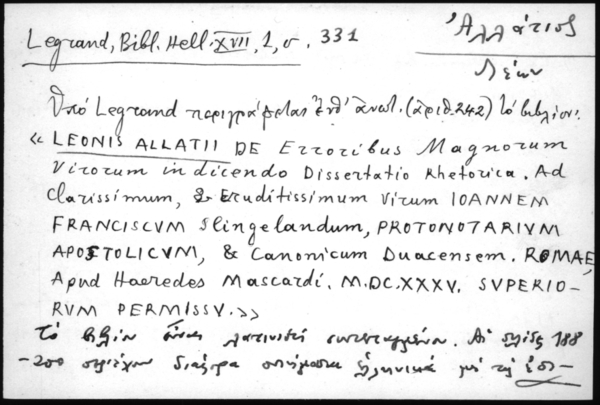 Legrand, Bibl. Hell. XVII, 1, σ. 331
Ἀλλάτιος
Λέων
Ὑπὸ Legrand περιγράφεται ἐνθ' ἀνωτ. (ἀριθ. 242) τὸ βιβλίον:
« LEONIS ALLATII DE Erroribus Magnorum
Virorum in dicendo Dissertatio Rhetorica. Ad
Clarissimum, & Eruditissimum Virum IOANNEM
FRANCISCVM Slingelandum, PROTONOTARIVM
APOSTOLICVM, & Canonicum Duacensem. ROMAE,
Apud Haeredes Mascardi. M.DC.XXXV. SVPERIO-
RVM PERMISSV. »
Τὸ βιβλίον εἶναι λατινιστὶ συντεταγμένον. Αἱ σελίδες 188
-200 περιέχουν διάφορα ποιήματα ἑλληνικὰ μὲ τὴν ἐπι-